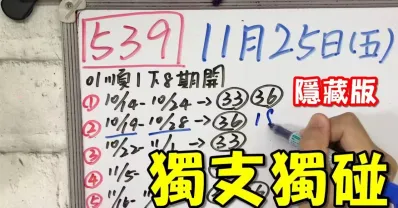 539 11月25日(五)
01順1下8期開
隱藏版
① 10/14- 10/24→ 33 36
② 10/19- 10/28→ 36 18
③ 10/22- 11/1→ 33
④ 11/5-
⑤
獨支獨碰